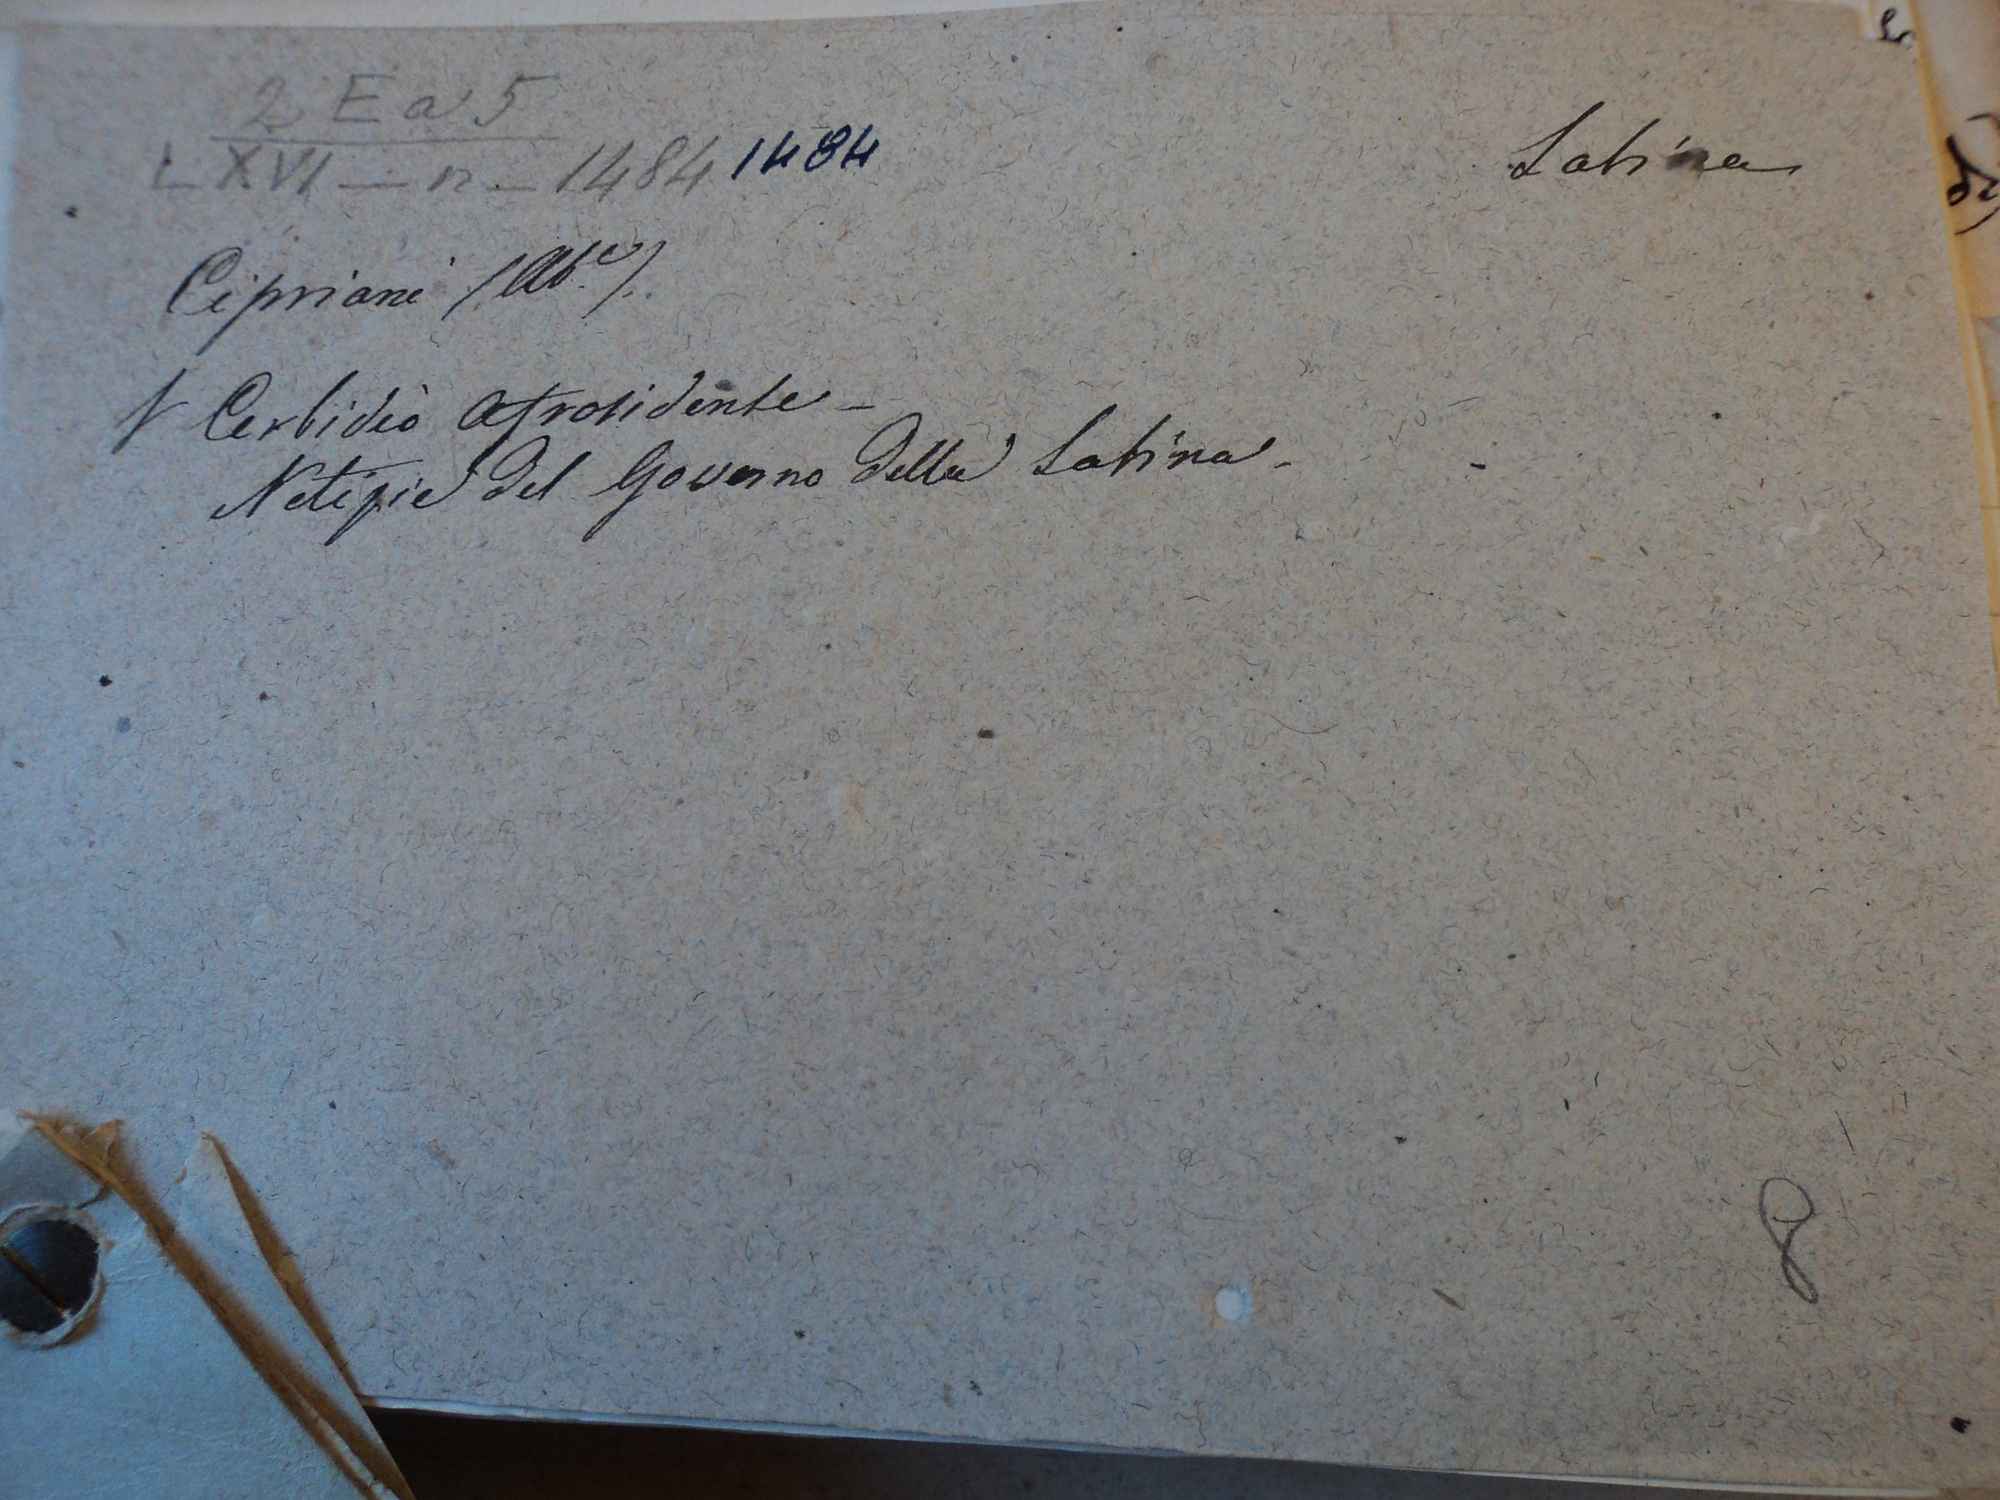 2 E a 5
L XVI — n — 1484 1484
Labina
Cipriani (Ab.e).
Cerbidio Afrosidente —
Notizie del Governo della Labina —